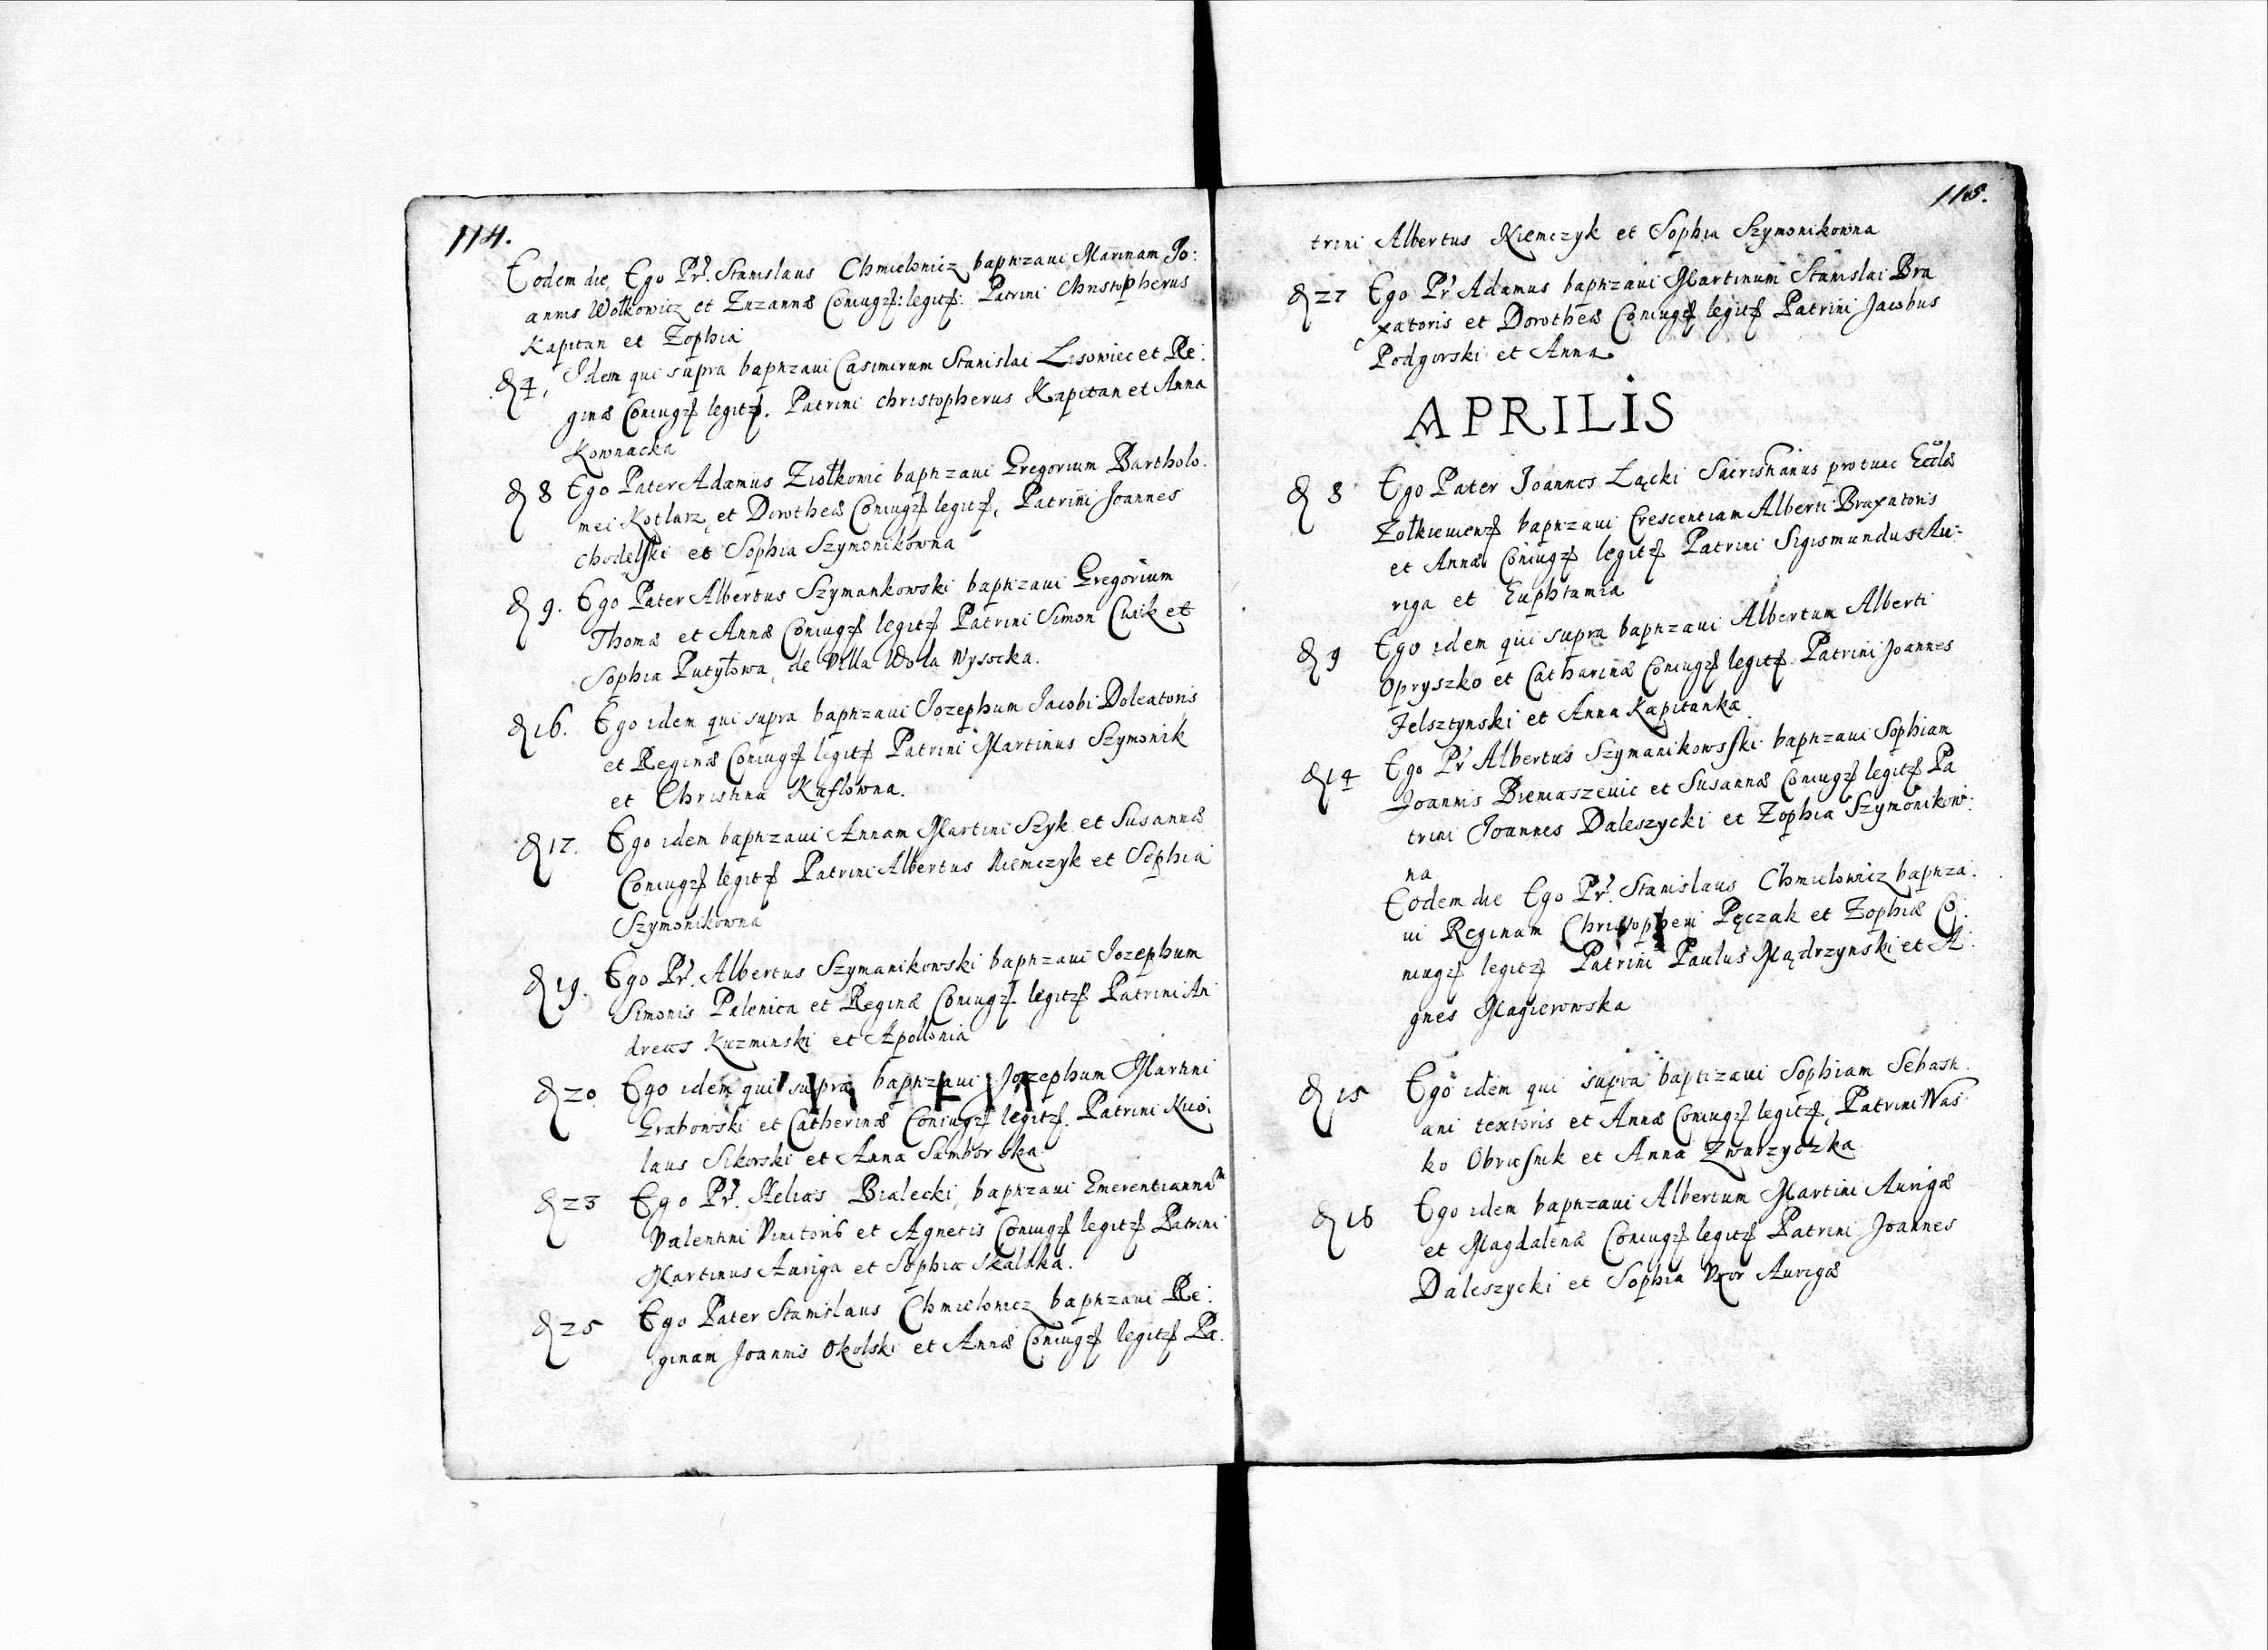 114.
Eodem die, Ego Pr. Stanislaus Chmielowicz baptizaui Marinam Jo:
annis Wołkowicz et Zuzannæ Coniugꝝ: legitꝝ: Patrini Christopherus
Kapitan et Zophia
D 4, Idem qui supra baptizaui Casimirum Stanislai Lisowiec et Re:
ginæ Coniugꝝ legitꝝ. Patrini christopherus Kapitan et Anna
Kownacka
D 8 Ego Pater Adamus Ziołkowic baptizaui Gregorium Bartholo:
mei Kotlarz et Dorotheæ Coniugꝝ legitꝝ, Patrini Joannes
chodelski et Sophia Szymonikowna
D 9. Ego Pater Albertus Szymankowski baptizaui Gregorium
Thomæ et Annæ Coniugꝝ legitꝝ Patrini Simon Cuik et
Sophia Putyłowa, de Villa Wola Wysocka.
D 16. Ego idem qui supra baptizaui Jozephum Jacobi Doleatoris
et Reginæ Coniugꝝ legitꝝ Patrini Martinus Szymonik
et Christina Kuflowna.
D 17. Ego idem baptizaui Annam Martini Szyk et Susannæ
Coniugꝝ legitꝝ Patrini Albertus Niemczyk et Sophia
Szymonikowna
D 19. Ego Pr. Albertus Szymanikowski baptizaui Jozephum
Simonis Palenica et Reginæ Coniugꝝ legitꝝ Patrini An
dreas Kuzminski et Apollonia
D 20 Ego idem qui supra baptizaui Jozephum Martini
Grabowski et Catherinæ Coniugꝝ legitꝝ. Patrini Nico
laus Sikorski et Anna Samborska
D 23 Ego Pr. Helias Bialecki, baptizaui Emerentiannam
Valentini Vinitoris et Agnetis Coniugꝝ legitꝝ Patrini
Martinus Auriga et Sophia Skalska.
D 25 Ego Pater Stanislaus Chmielowicz baptizaui Re:
ginam Joannis Okolski et Annæ Coniugꝝ legitꝝ Pa.
115.
trini Albertus Niemczyk et Sophia Szymonikowna
D 27 Ego Pr Adamus baptizaui Martinum Stanislai Bra
xatoris et Dorotheæ Coniugꝝ legitꝝ Patrini Jacobus
Podgorski et Anna
APRILIS
D 8 Ego Pater Joannes Łącki Sacristianus protunc Eccłæ
Zołkieuienꝝ baptizaui Crescentiam Alberti Braxatoris
et Annæ Coniugꝝ legitꝝ Patrini Sigismundus Au:
riga et Euphtamia
D 9 Ego idem qui supra baptizaui Albertum Alberti
Opryszko et Catharinæ Coniugꝝ legitꝝ Patrini Joannes
Felsztynski et Anna Kapitanka
D 14 Ego Pr Albertus Szymanikowsski baptizaui Sophiam
Joannis Bieniaszeuic et Susannæ Coniugꝝ legitꝝ Pa
trini Joannes Daleszycki et Zophia Szymonikow:
na
Eodem die Ego Pr. Stanislaus Chmielowicz baptiza:
ui Reginam Christopheri Pęczak et Zophiæ Co:
niugꝝ legitꝝ Patrini Paulus Mądrzynski et A:
gnes Magierowska
D 15 Ego idem qui supra baptizaui Sophiam Sebasti
ani textoris et Annæ Coniugꝝ legitꝝ, Patrini Was
ko Obrusnik et Anna Zwarzyczka
D 16 Ego idem baptizaui Albertum Martini Aurigæ
et Magdalenæ Coniugꝝ legitꝝ Patrini Joannes
Daleszycki et Sophia Vxor Aurigæ